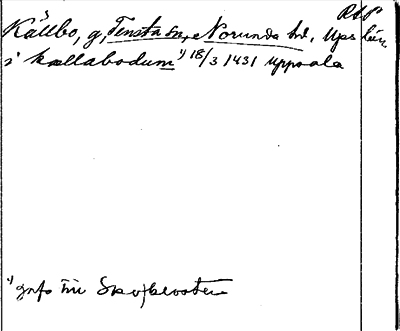 RAP
Källbo, g, Tensta sn, Norunda hd, Upps län
i kællabodum 1) 18/3 1431 Uppsala
1) gnfo till Skoklostere